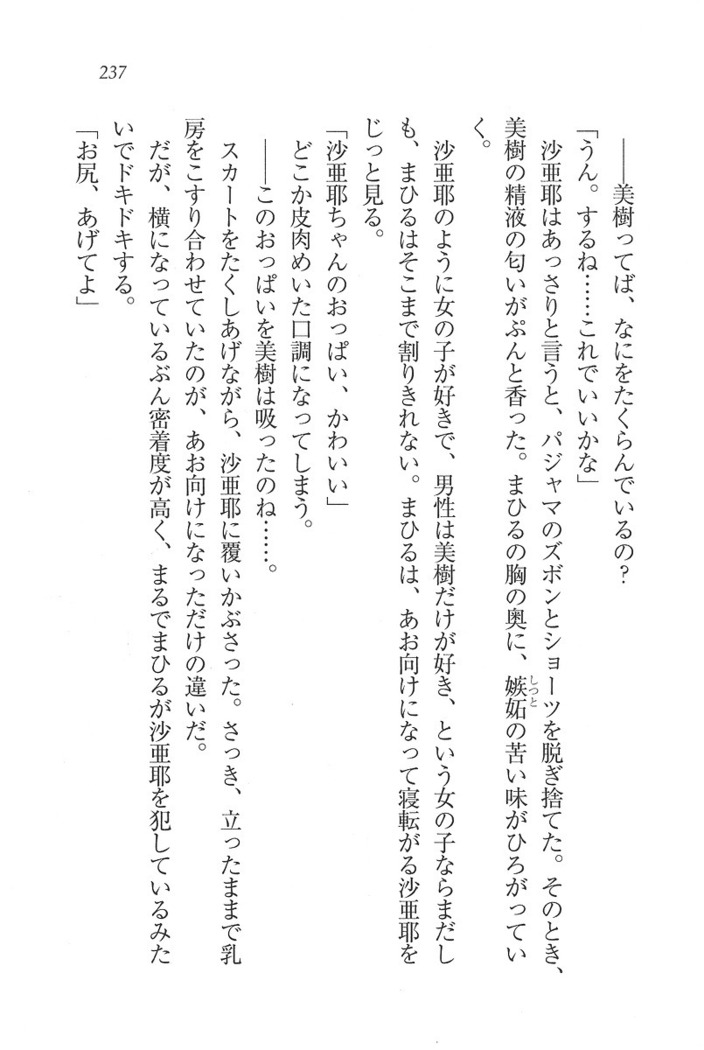 237
――美樹ってば、なにをたくらんでいるの？
「うん。するね……これでいいかな」
沙亜耶はあっさりと言うと、パジャマのズボンとショーツを脱ぎ捨てた。そのとき、
美樹の精液の匂いがぷんと香った。まひるの胸の奥に、嫉妬の苦い味がひろがってい
しつと
く。
沙亜耶のように女の子が好きで、男性は美樹だけが好き、という女の子ならまだし
も、まひるはそこまで割りきれない。まひるは、あお向けになって寝転がる沙亜耶を
じっと見る。
「沙亜耶ちゃんのおっぱい、かわいい」
どこか皮肉めいた口調になってしまう。
――このおっぱいを美樹は吸ったのね……。
スカートをたくしあげながら、沙亜耶に覆いかぶさった。さっき、立ったままで乳
房をこすり合わせていたのが、あお向けになっただけの違いだ。
だが、横になっているぶん密着度が高く、まるでまひるが沙亜耶を犯しているみた
いでドキドキする。
「お尻、あげてよ」